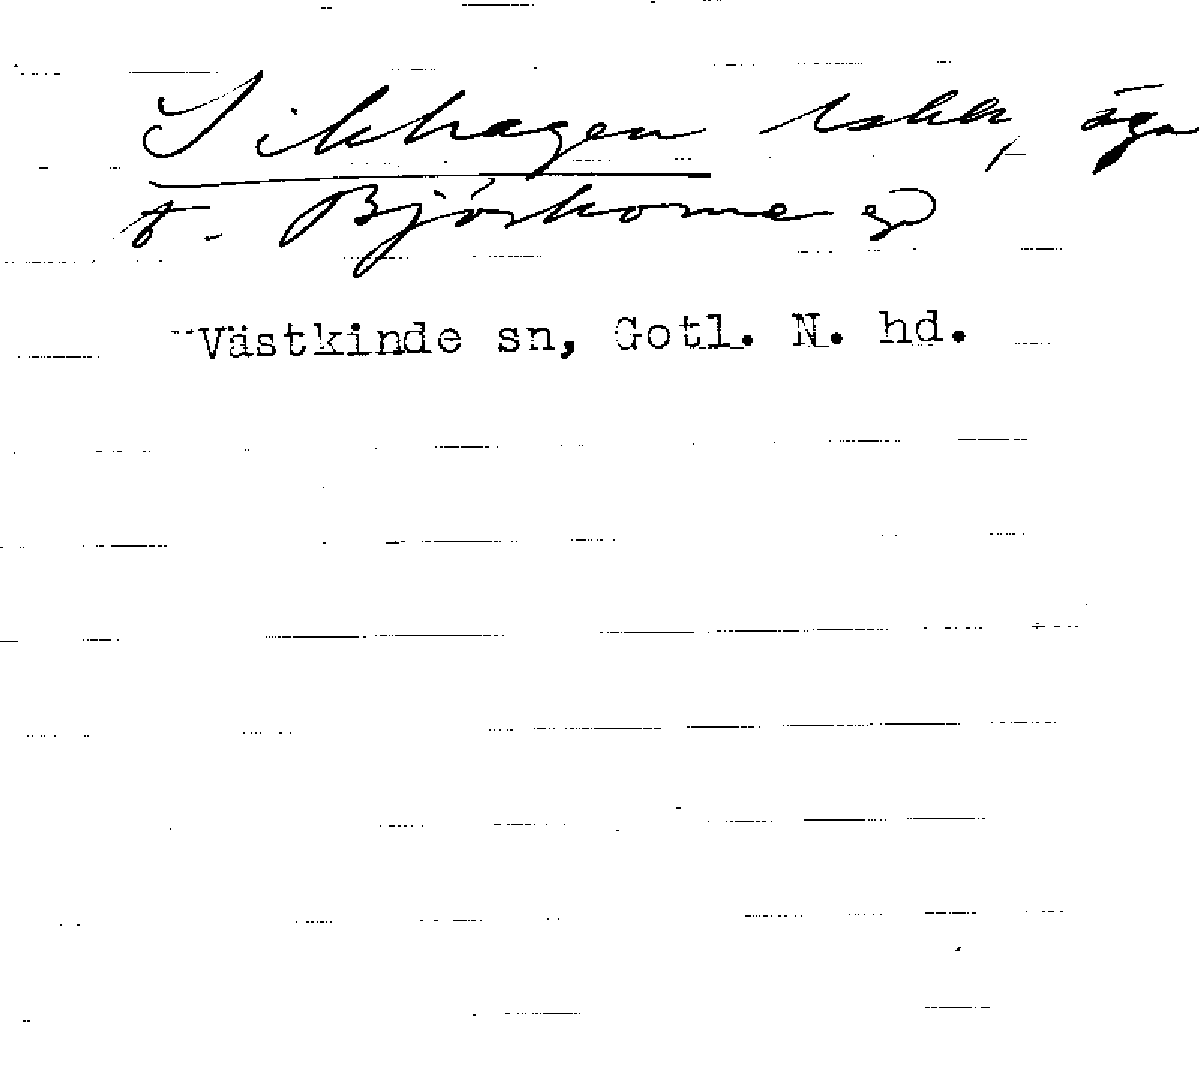 Sikhagen äga
t. Björkome
Västkinde sn, Gotl. N. hd.